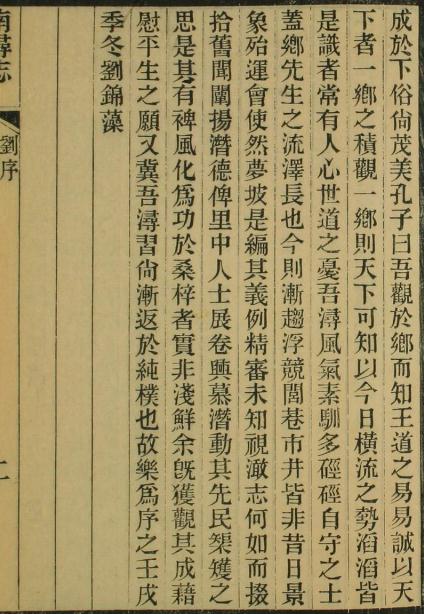 成於下俗尙茂美孔子曰吾觀於鄕而知王道之易易誠以天
下者一鄕之積觀一鄕則天下可知以今日橫流之勢滔滔皆
是識者常有人心世道之憂吾潯風氣素馴多硜硜自守之士
蓋鄕先生之流澤長也今則漸趨浮競閭巷市井皆非昔日景
象殆運會使然夢坡是編其義例精審未知視澉志何如而掇
拾舊聞闡揚潛德俾里中人士展卷興慕潛動其先民榘矱之
思是其有裨風化爲功於桑梓者實非淺鮮余旣獲觀其成藉
慰平生之願又冀吾潯習尙漸返於純樸也故樂爲序之壬戌
季冬劉錦藻
南潯志
劉序
二